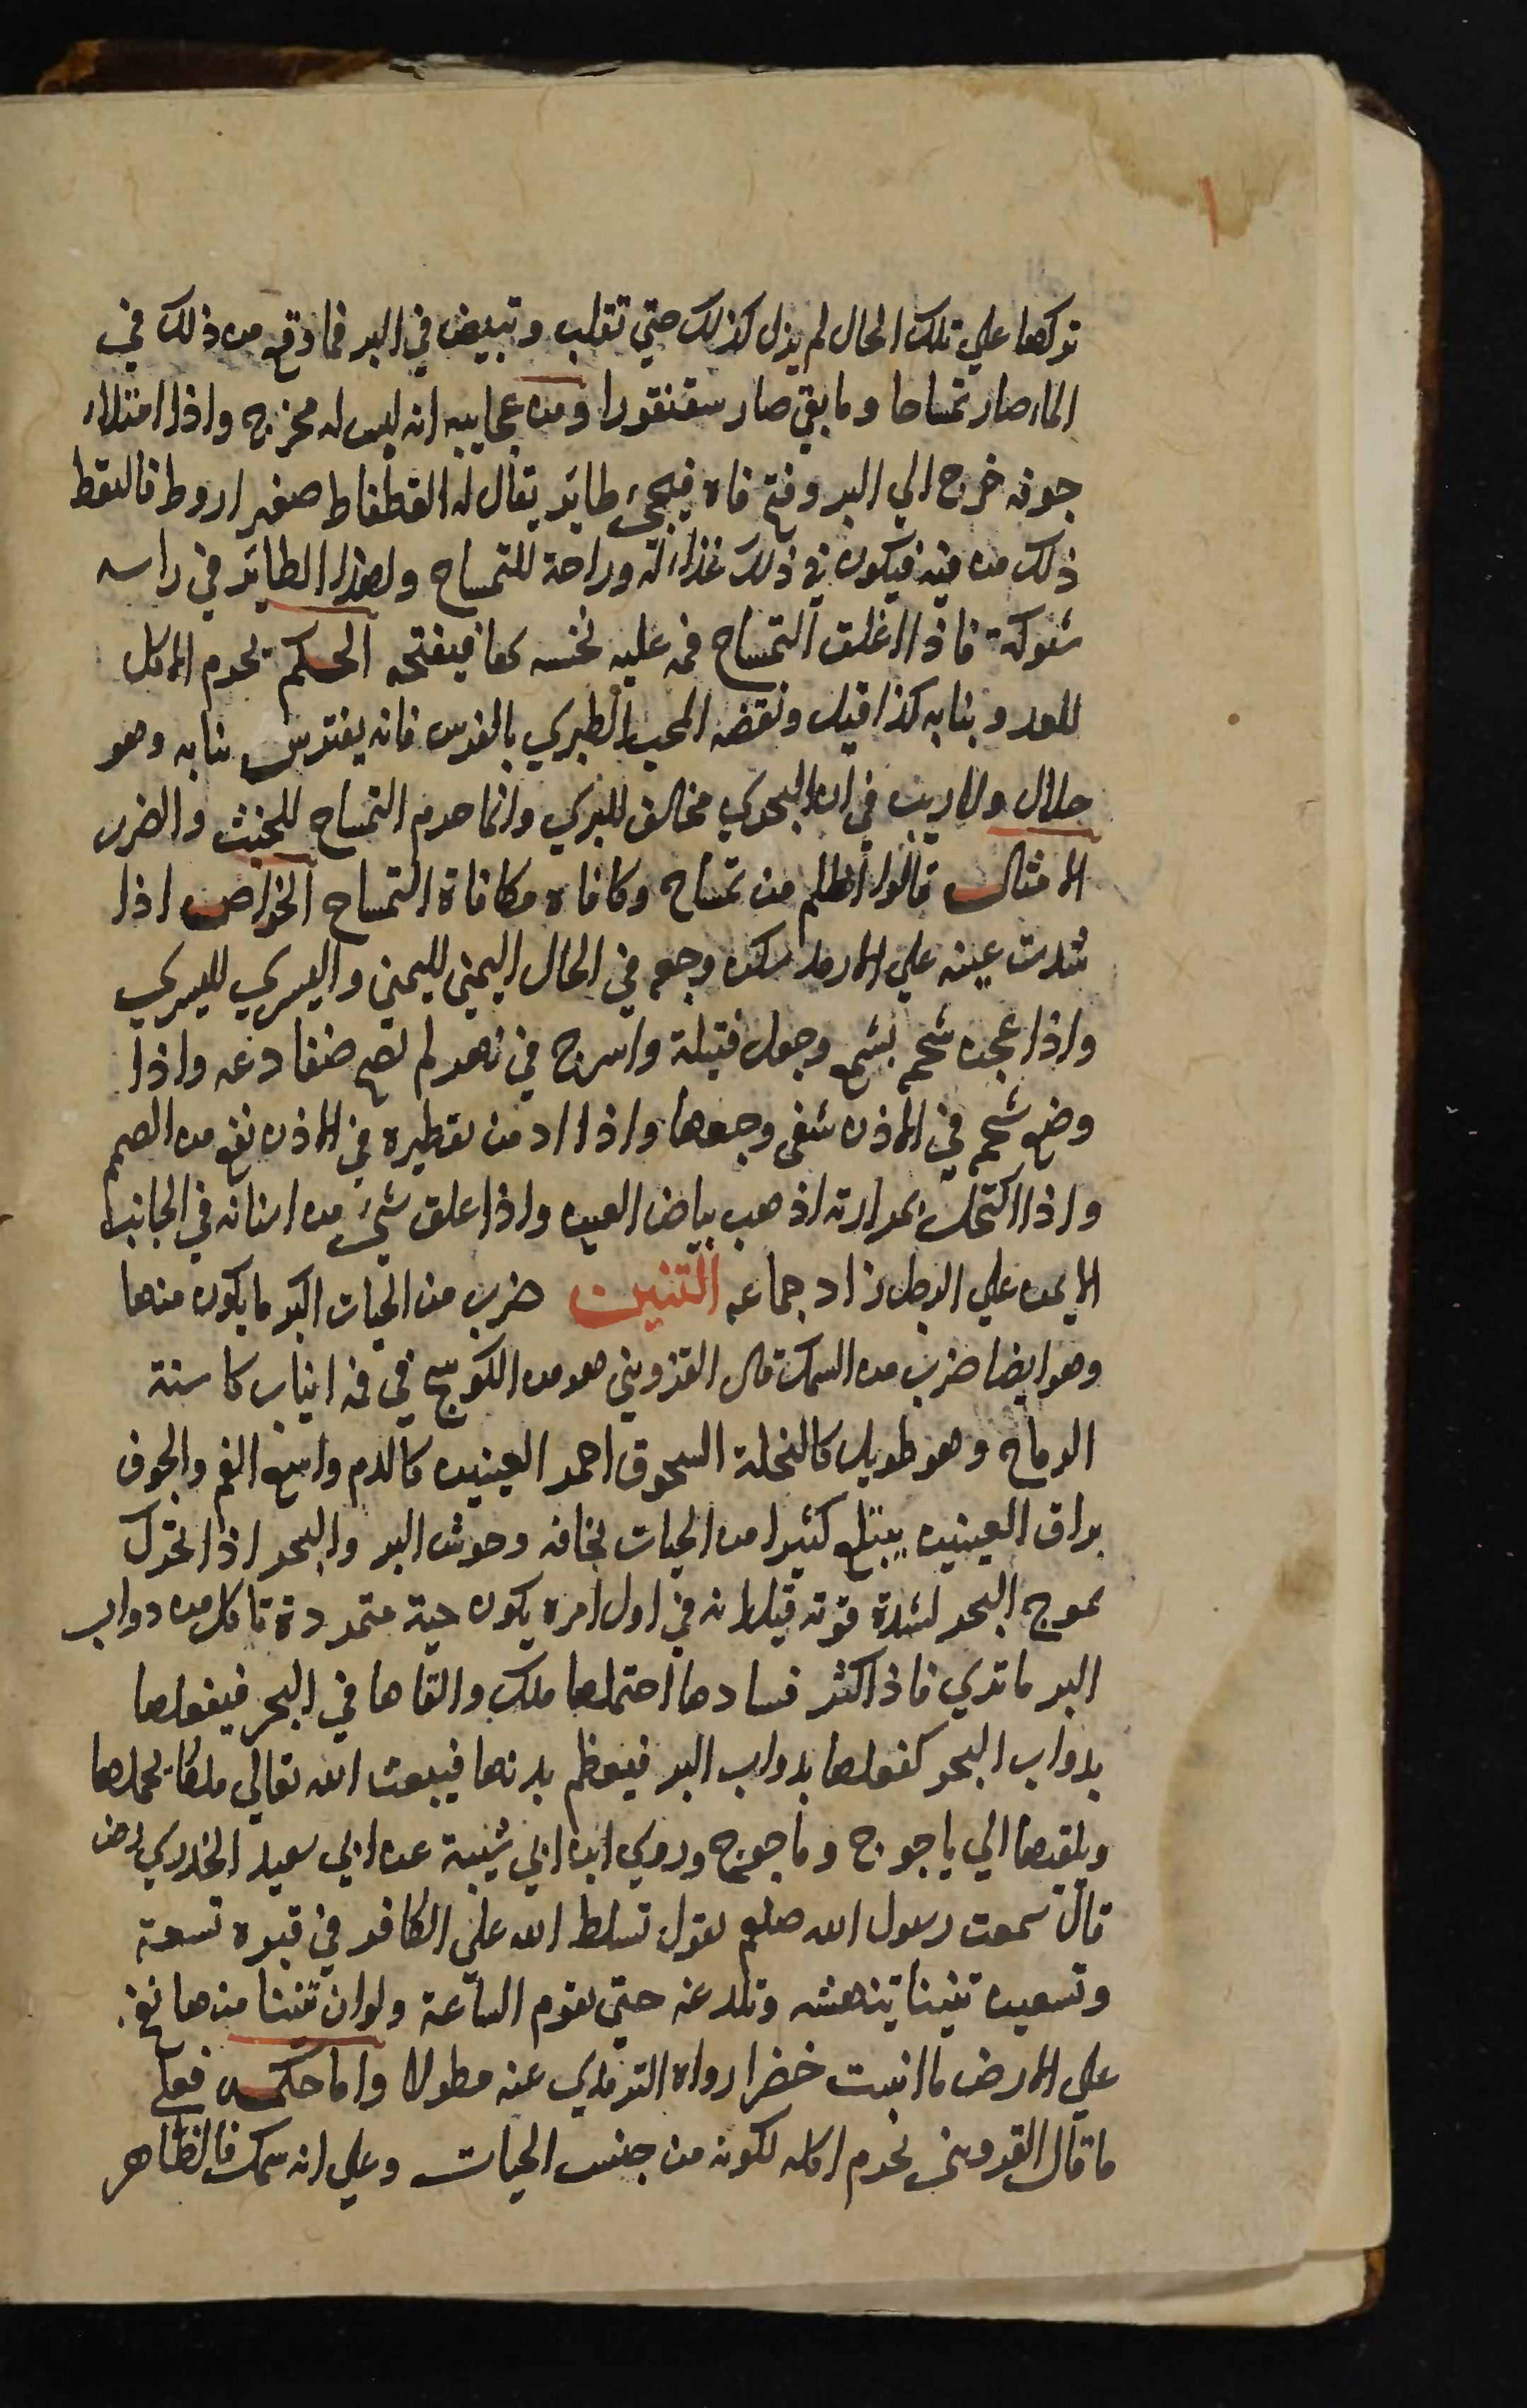 تركها علي تلك الحال لم يزل كذلك حتي تقلب وتبيض في البر فما وقع من ذلك في
الماء صار تمساحا وما بقي صار سقنقورا ومن عجايبه انه ليس له مخرج واذا امتلاء
جوفه خرج الي البر وفتح فاه فيجيء طائر يقال له القطقاط صغير اروط فالتقط
ذلك من فيه فيكون في ذلك غذاء له وراحة للتمساح ولهذا الطائر في راسه
شوكة فاذا اغلق التمساح فمه عليه نخسه بها فيفتحه الحكم يحرم الاكل
للعدو بنابه كذا قيل ونقضه المحب الطبري بالقرش فانه يفترس بنابه وهو
حلال ولا ريب في ان البحري مخالف للبري وانما حرم التمساح للخبث والضرر
الامثال قالوا اظلم من تمساح وكافاه مكافاة التمساح الخواص اذا
شدت عينه علي الارمد سكن وجعه في الحال اليمني لليمني واليسري لليسري
واذا عجن شحمه بشمع وجعل فتيلة واسرج في نهر لم تصح ضفادعه واذا
وضع شحمه في الاذن شفي وجعها واذا ادمن تقطيره في الاذن نفع من الصمم
واذا اكتحل بمرارته اذهب بياض العين واذا علق شيء من اسنانه في الجانب
الايمن علي الرجل زاد جماعه التنين ضرب من الحيات اكبر ما يكون منها
وهو ايضا ضرب من السمك قال القزويني هو من الكوسج في فمه انياب كاسنة
الرماح وهو طويل كالنخلة السحوق احمر العينين كالدم واسع الفم والجوف
براق العينين يبتلع كثيرا من الحيات يخافه وحوش البر والبحر اذا تحرك
يموج البحر لشدة قوته قيل انه في اول امره يكون حية متمردة تاكل من دواب
البر ما تري فاذا كثر فسادها احتملها ملك والقاها في البحر فيفعلها
بدواب البحر كفعلها بدواب البر فيعظم بدنها فيبعث الله تعالي ملكا يحملها
ويلقيها الي ياجوج وماجوج وروي ابن ابي شيبة عن ابي سعيد الخدري رض
قال سمعت رسول الله صلعم يقول تسلط الله علي الكافر في قبره تسعة
وتسعين تنينا تنهشه وتلدغه حتي تقوم الساعة ولو ان تنينا منها نفخ
علي الارض ما انبتت خضرا رواه الترمذي عنه مطولا واما حكمه فعلي
ما قال القزويني يحرم اكله لكونه من جنس الحيات وعلي انه سمك فالظاهر